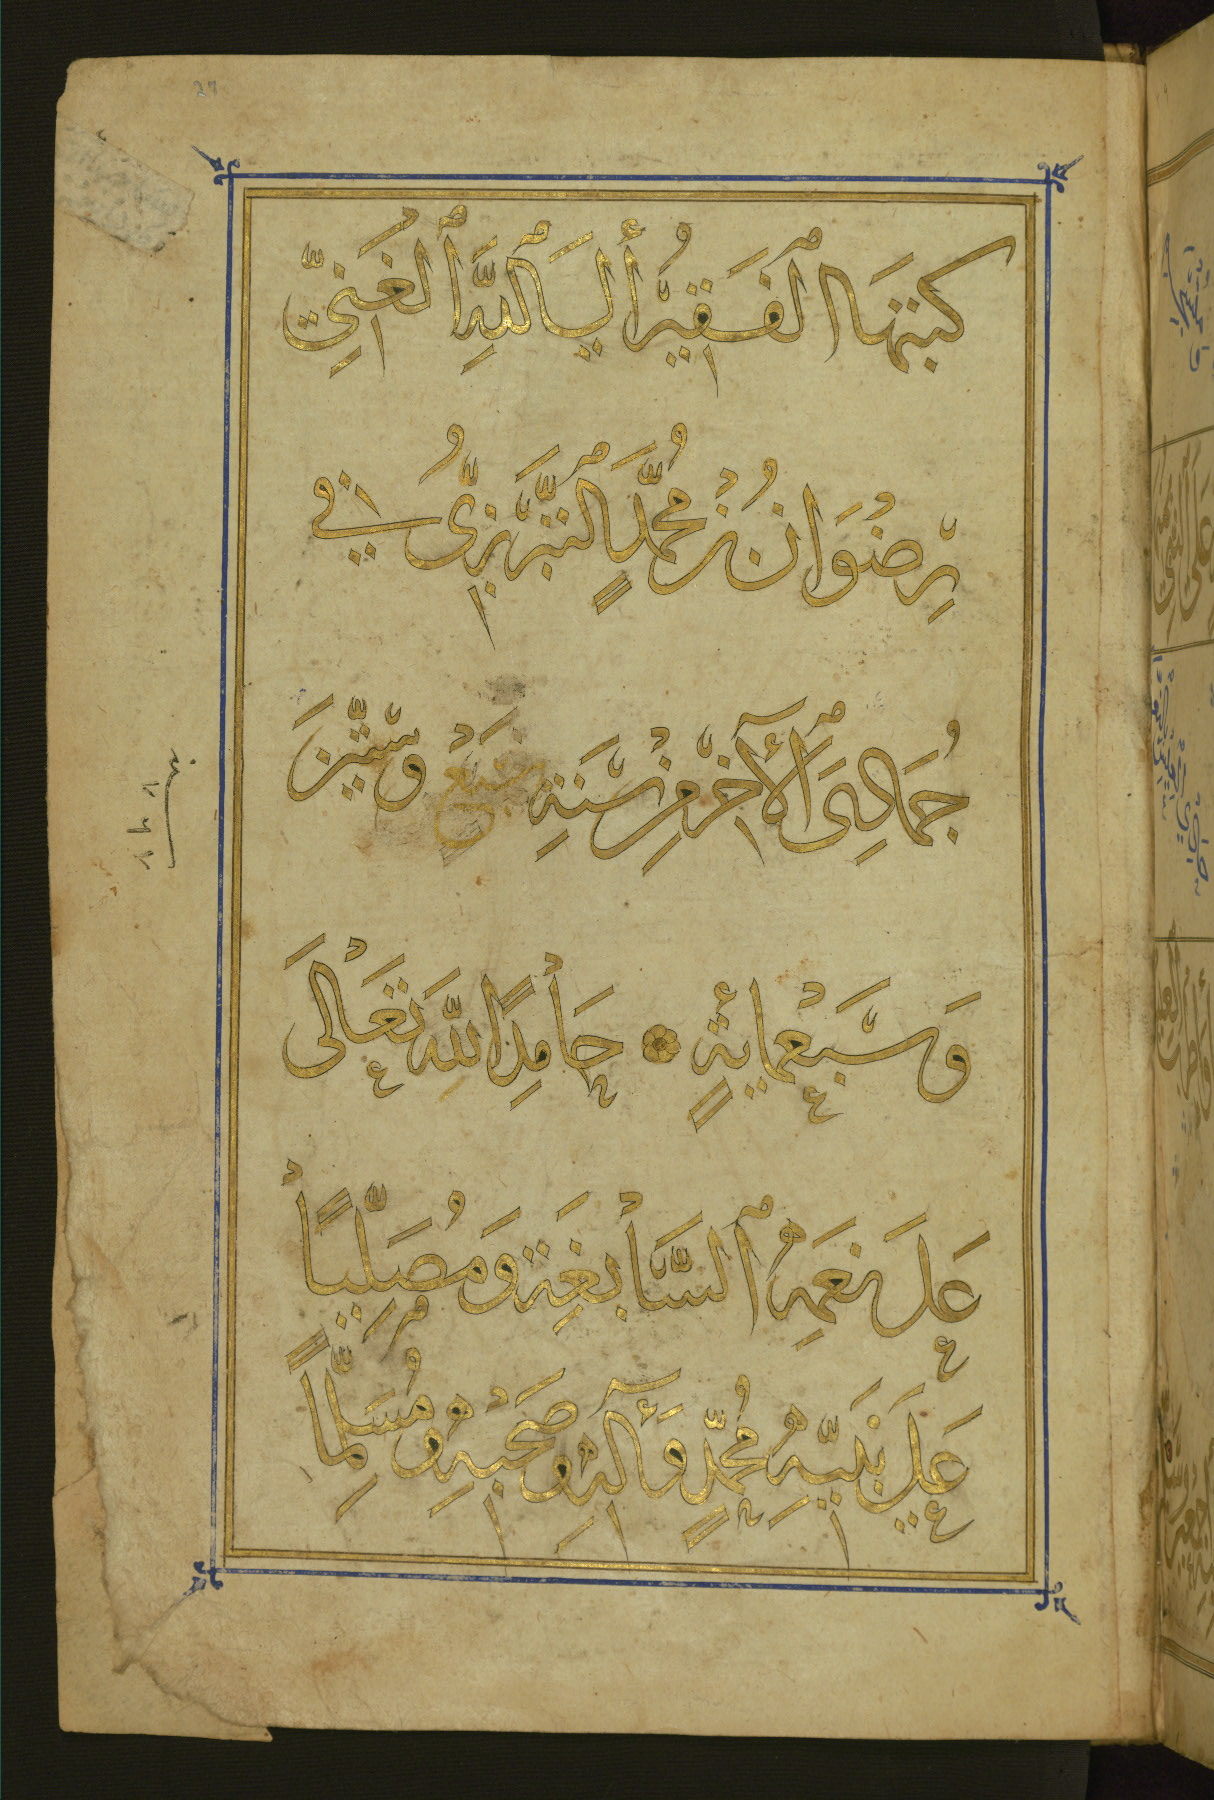 كَتَبَهَا الْفَقِيرُ إِلَى اللَّهِ الْغَنِيِّ
رِضْوَانُ بْنُ مُحَمَّدٍ التَّبْرِيزِيُّ فِي
جُمَادَى الْآخَرِ مِنْ سَنَةِ سَبْعٍ وَسِتِّينَ
وَسَبْعِمِايَةٍ حَامِدًا لِلَّهِ تَعَالَى
عَلَى نِعَمِهِ السَّابِغَةِ وَمُصَلِّيًا
عَلَى نَبِيِّهِ مُحَمَّدٍ وَآلِهِ وَصَحْبِهِ وَمُسَلِّمًا
27